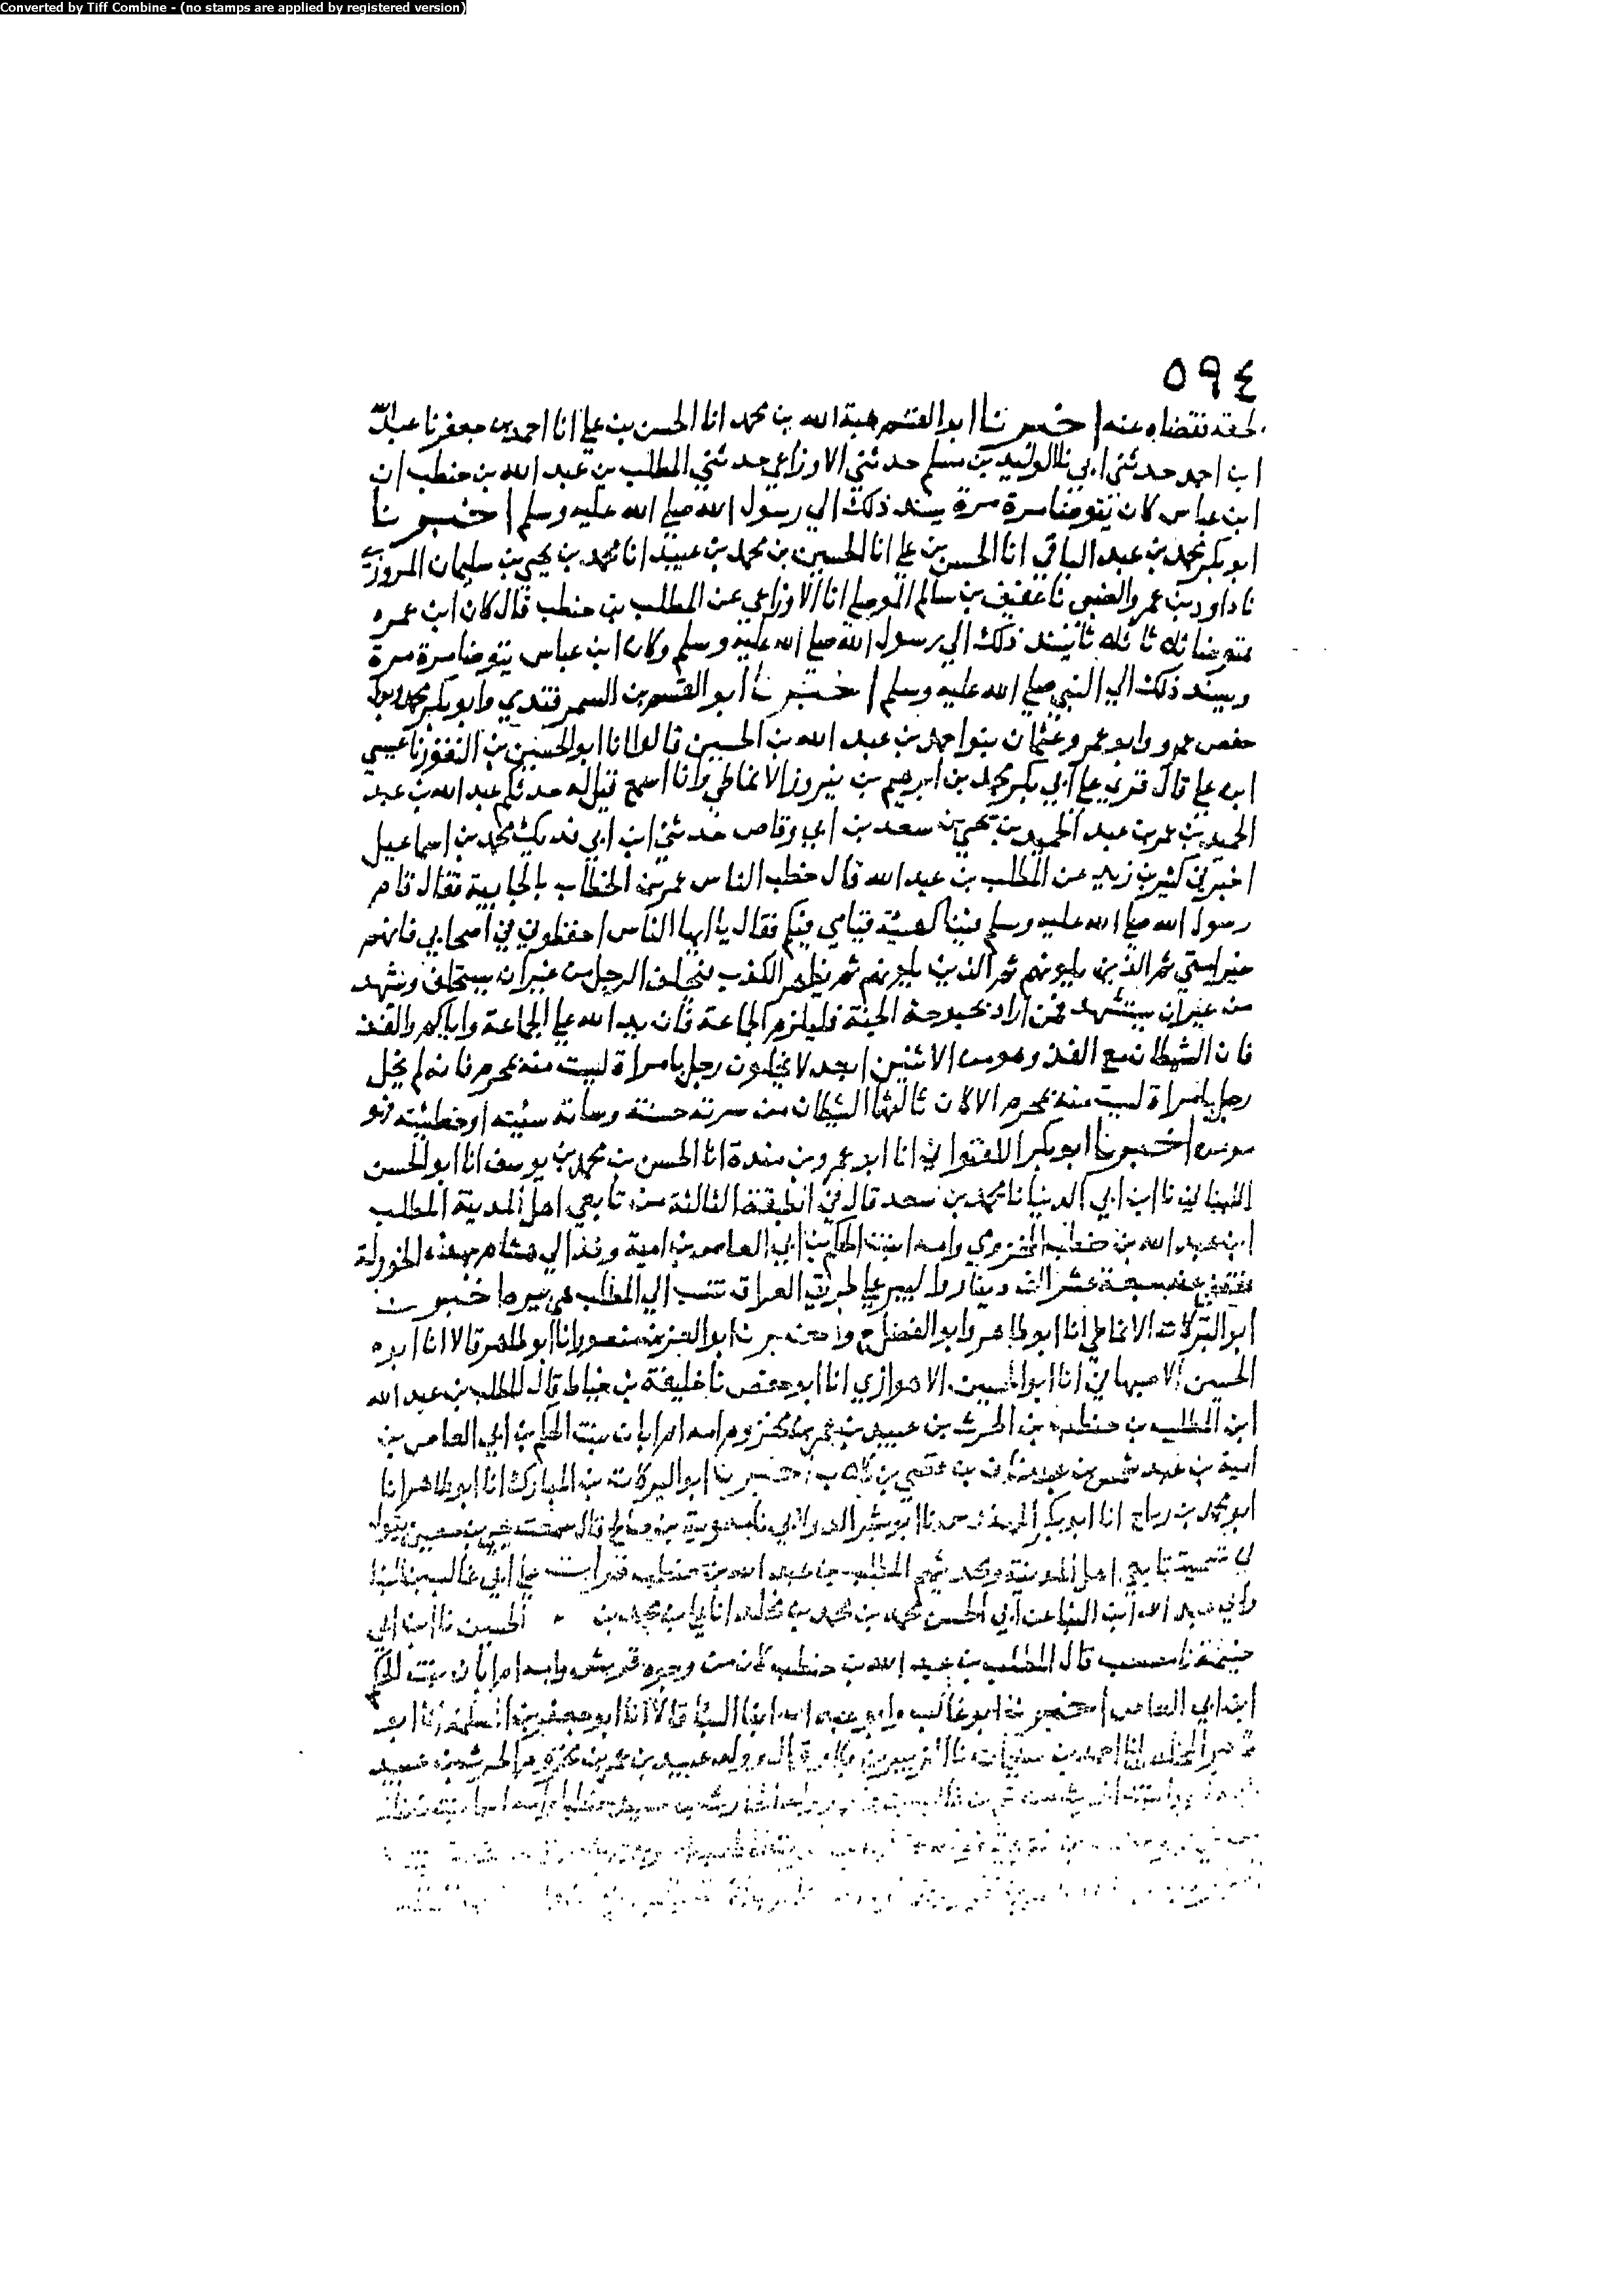 Converted by Tiff Combine - (no stamps are applied by registered version)
٥٩٤
لحقه فقضاه عنه اخبرنا ابو القسم هبة الله بن محمد انا الحسن بن علي انا احمد بن جعفر نا عبد الله
ابن احمد حدثني ابي نا الوليد بن مسلم حدثني الاوزاعي حدثني المطلب بن عبد الله بن حنطب ان
ابن عباس كان يتوضا مرة مرة يسند ذلك الي رسول الله صلي الله عليه وسلم اخبرنا
ابو بكر محمد بن عبد الباقي انا الحسن بن علي انا الحسين بن محمد بن عبيد انا محمد بن يحيي بن سليمان المروزي
نا داود بن عمرو الضبي نا عفيف بن سالم الموصلي انا الاوزاعي عن المطلب بن حنطب قال كان ابن عمر
يتوضا ثلثا ثلثا يسند ذلك الي رسول الله صلي الله عليه وسلم وكان ابن عباس يتوضا مرة مرة
ويسند ذلك الي النبي صلي الله عليه وسلم اخبرنا ابو القسم بن السمرقندي وابو بكر محمد وابو
حفص عمرو وابو عمرو عثمان بنوا احمد بن عبد الله بن الحسين قالوا انا ابو الحسين بن النقور نا عيسي
ابن علي قال قري علي ابي بكر محمد بن ابرهيم بن نيروز الانماطي وانا اسمع قيل له حدثكم عبد الله بن عبد
الحميد بن عمر بن عبد الحميد بن يحيي بن سعد بن ابي وقاص حدثني ابن ابي فديك محمد بن اسماعيل
اخبرني كثير بن زيد عن المطلب بن عبد الله قال خطب الناس عمر بن الخطاب بالجابية فقال قام
رسول الله صلي الله عليه وسلم فينا كهيئة قيامي فيكم فقال يا ايها الناس احفظوني في اصحابي فانهم
خير امتي ثم الذين يلونهم ثم الذين يلونهم ثم يظهر الكذب فيحلف الرجل من غير ان يستحلف ويشهد
من غير ان يستشهد فمن اراد بحبوحة الجنة فليلزم الجماعة فان يد الله علي الجماعة واياكم والفذ
فان الشيطان مع الفذ وهو من الاثنين ابعد لا يخلون رجل بامراة ليست منه بمحرم فانه لم يخل
رجل بامراة ليست منه بمحرم الا كان ثالثهما الشيطان من سرته حسنة وساته سيئته او خطيئته فهو
مومن اخبرنا ابو بكر اللفتواني انا ابو عمرو بن مندة انا الحسن بن محمد بن يوسف انا ابو الحسن
نا ابن ابي الدنيا نا محمد بن سعد قال في الطبقة الثالثة من تابعي اهل المدينة المطلب
ابن عبد الله بن حنطب المخزومي وامه ابنت الحكم بن ابي العاص بن امية وفد الي هشام بهذه الخؤولة
فقضي عنه سبعة عشر الف دينار وله بير علي طريق العراق تنسب الي المطلب هي بيره اخبرنا
ابو البركات الانماطي انا ابو طاهر وابو الفضل ح واخبرنا ابو العز بن منصور انا ابو طاهر قالا انا ابو
الحسين الاصبهاني انا ابو الحسين الاهوازي انا ابو حفص نا خليفة بن خياط قال المطلب بن عبد الله
ابن المطلب بن حنطب بن الحرث بن عبيد بن عمر بن مخزوم امه ام ابان بنت الحكم بن ابي العاص بن
امية بن عبد شمس بن عبد مناف بن قصي بن كلاب اخبرنا ابو البركات بن المبارك انا ابو طاهر انا
ابو محمد بن رباح انا ابو بكر المهندس نا ابو بشر الدولابي نا معوية بن صالح قال سمعت يحيي بن معين يقول
في تسمية تابعي اهل المدينة ومحدثيهم المطلب بن عبد الله بن حنطب قرات علي ابي غالب بن البنا
وابي عبد الله ابن البنا عن ابي الحسن محمد بن محمد بن مخلد انا علي بن محمد بن الحسين نا ابن ابي
خيثمة نا مصعب قال المطلب بن عبد الله بن حنطب كان من وجوه قريش وامه ام ابان بنت الحكم
ابن ابي العاص اخبرنا ابو غالب وابو عبد الله ابنا البنا قالا انا ابو جعفر بن المسلمة نا ابو
المخلص انا احمد بن سليمان نا الزبير بن بكار قال وولد عبيد بن عمر بن مخزوم الحرث بن عبيد